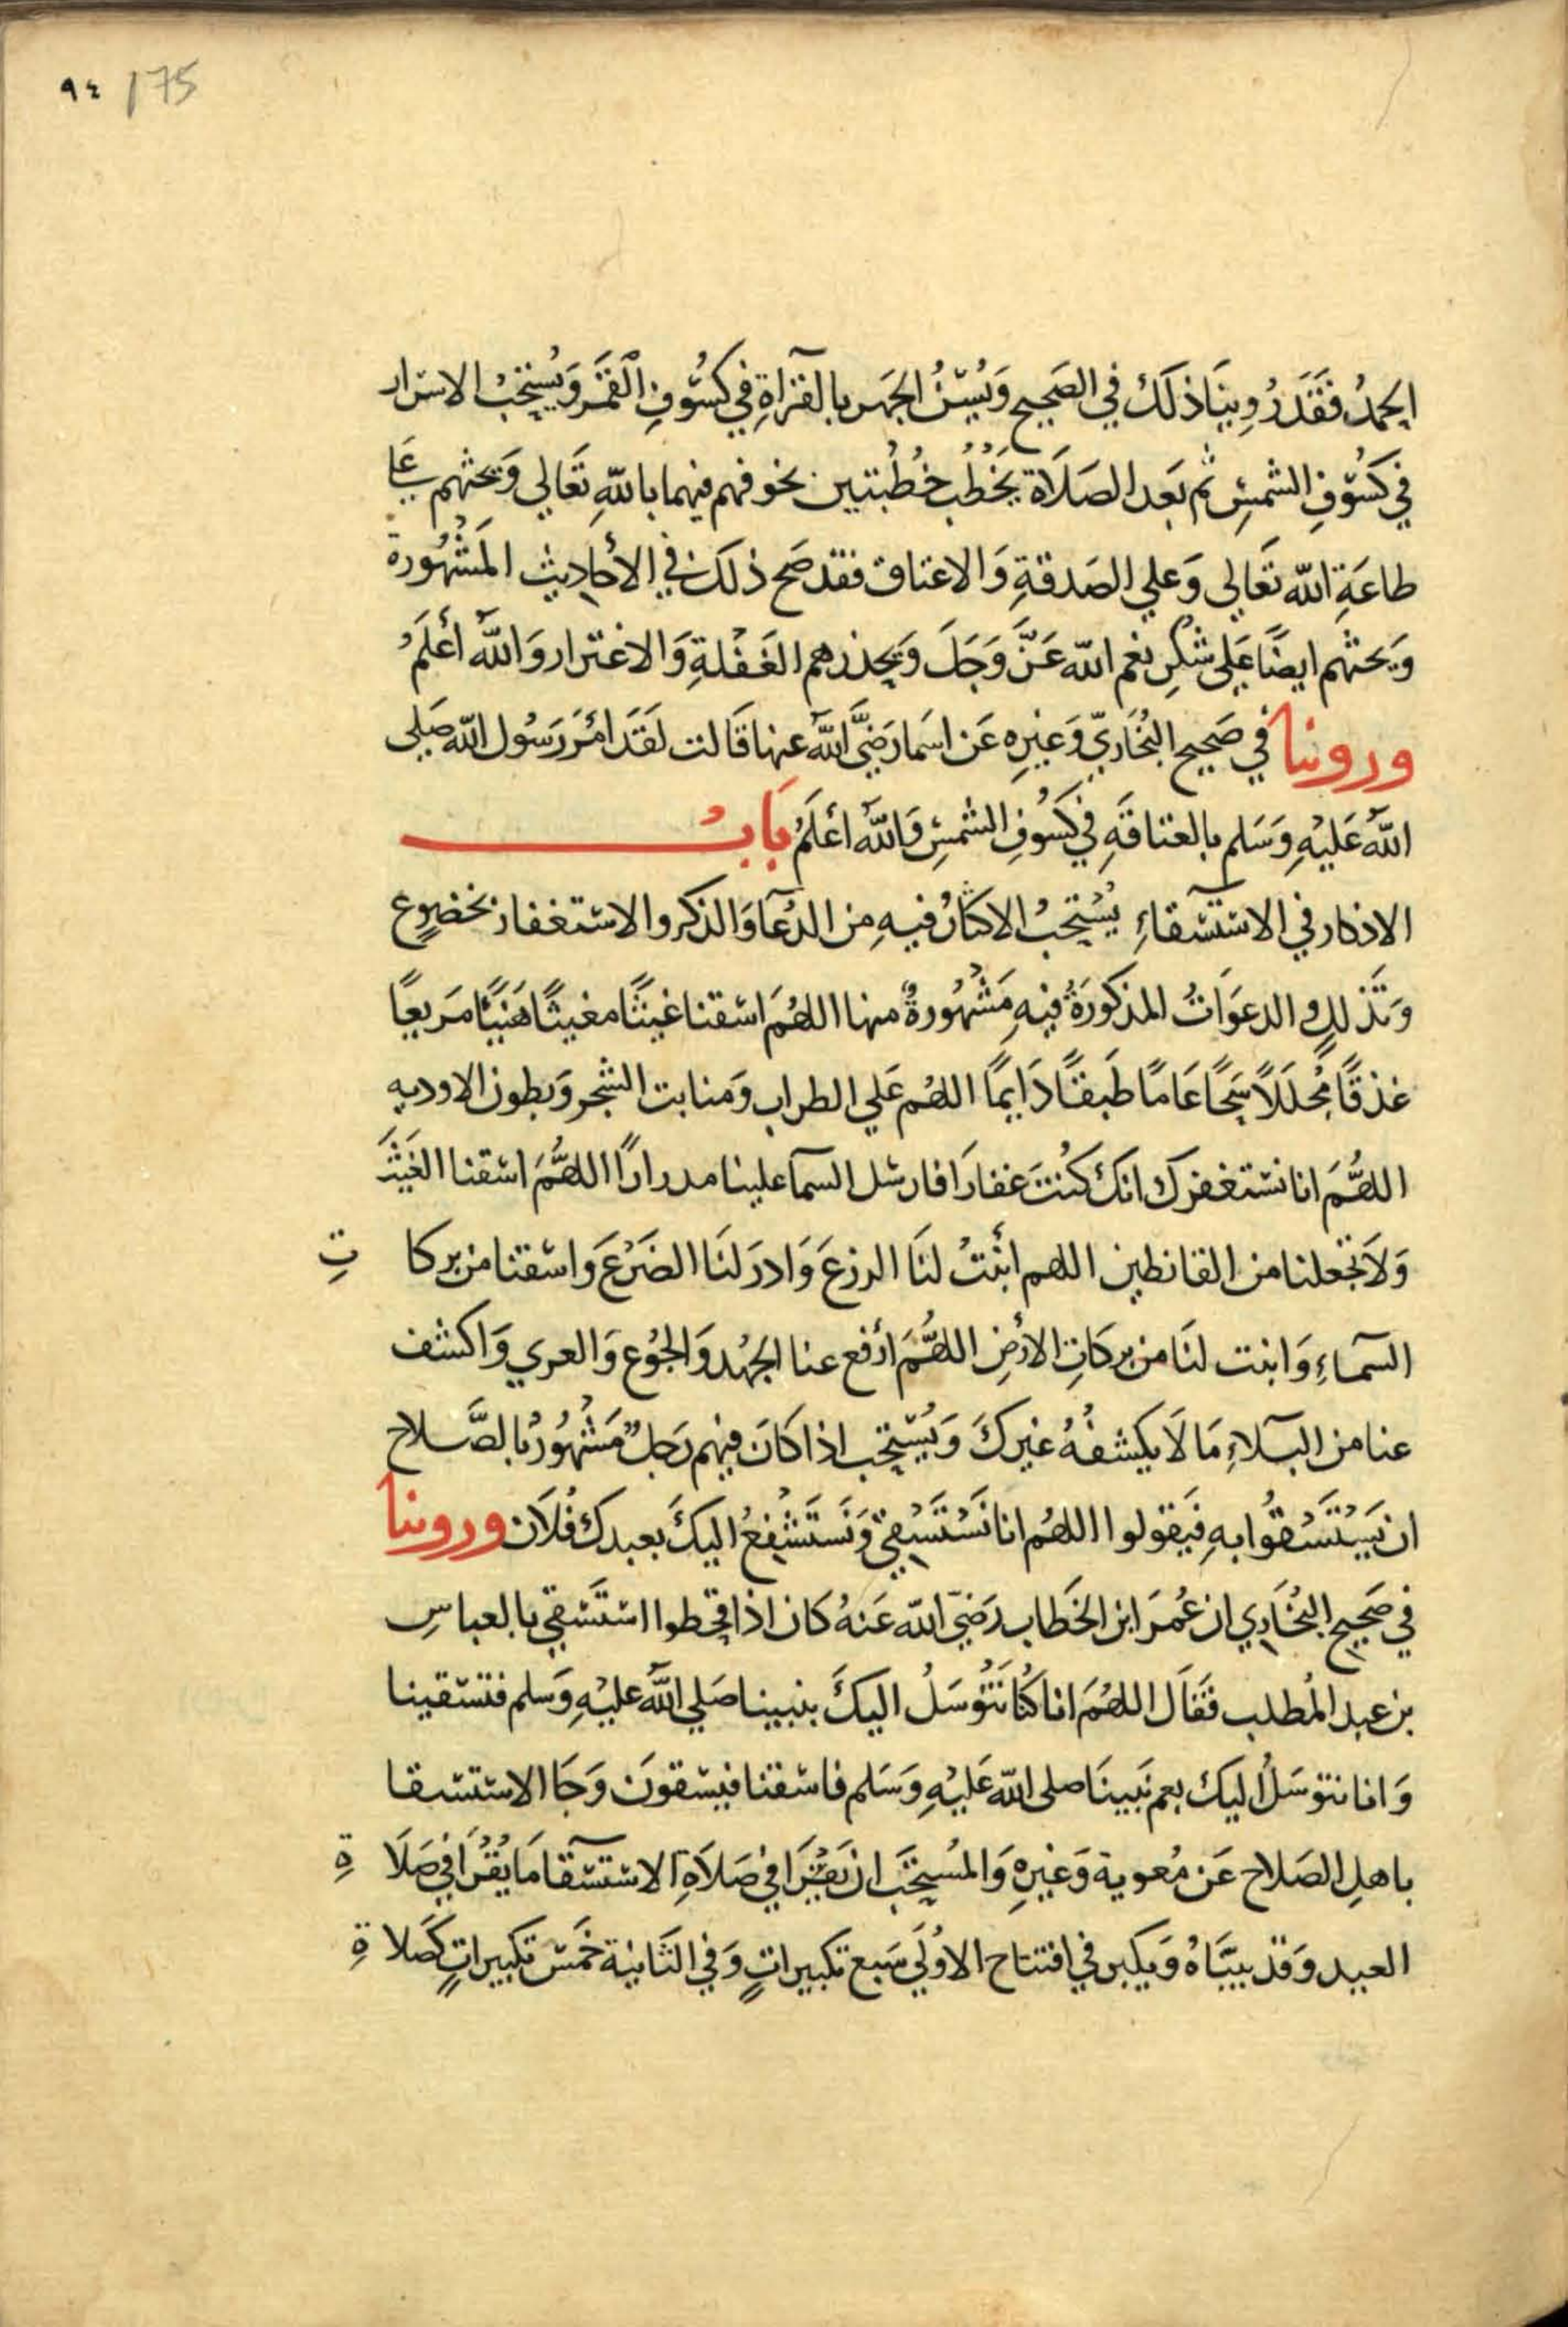 ٩٤ / 75
الحمدُ فَقَدَ رُوِينَا ذلَكَ في الصَحِيحِ وَيُسَنُّ الجَهر بالقرَاةِ في كسُوفِ القَمَرِ وَيُستِحَبُ الاسرَار
في كسُوفِ الشمسِ ثم بَعد الصَلَاة يَخْطُبُ خُطْبَتين يخوفهم فيهما باللهِ تَعَالي وَيحثهم عَلي
طاعَةِ الله تعَالي وَعلي الصَدقةِ وَالاعتاق فقد صَح ذلكَ في الأحَاديث المَشْهُورة
وَيحثهم ايضًا عَلي شكرِ نعم الله عَزَّ وَجَلَ وَيحذرهم الغَفْلَةِ وَالاغترار وَاللهُ أعْلَمُ
وروينا في صَحِيحِ البُخَاريّ وَغيرِهِ عَن اسمَا رَضِيَّ اللهُ عنها قَالت لقَدَ امَرَ رَسُول الله صَلي
اللهُ عَليْهِ وَسَلم بالعتاقَةِ في كسُوفِ الشمسِ وَاللهُ أعلَمُ بَابُ
الاذكار في الاستسقاءِ يُسْتِحَبُ الاكثارُ فيهِ من الدُعَا وَالذكر والاستغفار بخضوعٍ
وَتَذللٍ والدعوَاتُ المذكورَةُ فيهِ مَشْهُورةٌ منها اللهُمَ اسقنا غيثًا مغيثًا هَنيًا مَريعًا
غذقًا مُجللاً سَحًا عَامًا طَبقًا دَايمًا اللهُم عَلي الطراب وَمنابت الشجر وَبطون الاوديه
اللهُّمَ انا نستغفركَ انكَ كنُتَ غفارًا فارسل السما علينا مدرارًا اللهُّمَ اسقنا الغَيثَ
وَلاَ تجعلنا من القانطين اللهم انْبتْ لنَا الزرعَ وَادرَ لنَا الضَرْعَ واسقنا من بركاتِ
السماءِ وَانبت لنَا من بركَاتِ الأرْضِ اللهُّمَ ارْفع عنا الجَهْد وَالجُوع وَالعري وَاكشف
عنا من البَلاءِ مَا لَا يكشفُهُ غيركَ وَيُسْتِحَب اذا كَانَ فيهم رَجلٌ مَشْهُورٌ بالصَّلاح
ان يَسْتَسْقُوا بهِ فيَقولوا اللهُم انا نَسْتَسْقِيّ وَنَستَشْفِعُ اليكَ بعبدكَ فُلَان وروينا
في صَحِيحِ البُخَاري ان عُمرَ ابن الخَطَاب رَضيّ الله عَنهُ كان اذا قحطوا استَسْقي بالعباسِ
بن عبد المُطلب فقَال اللهُمَ انا كنُا نَتَوُسَلُ اليكَ بنبينا صَلي اللهُ عليْهِ وَسلم فتسقينا
وَانا نتوسَلُ اليكَ بعم نَبينَا صلى الله عَليْهِ وَسَلم فاسقنا فيسْقونَ وَجَا الاستسقا
باهلِ الصَلاح عَن مُعوية وَغيرِهِ وَالمُسْتحَبّ ان يَقْرَا في صَلاَةِ الاستسقا مَا يُقْرَا في صَلَاةِ
العيد وَقد بيّنَاهُ وَيكبر في افتتاح الاوُلَي سَبع تكبيراتٍ وَفي الثَانية خَمْس تكبيراتٍ كَصَلاةِ